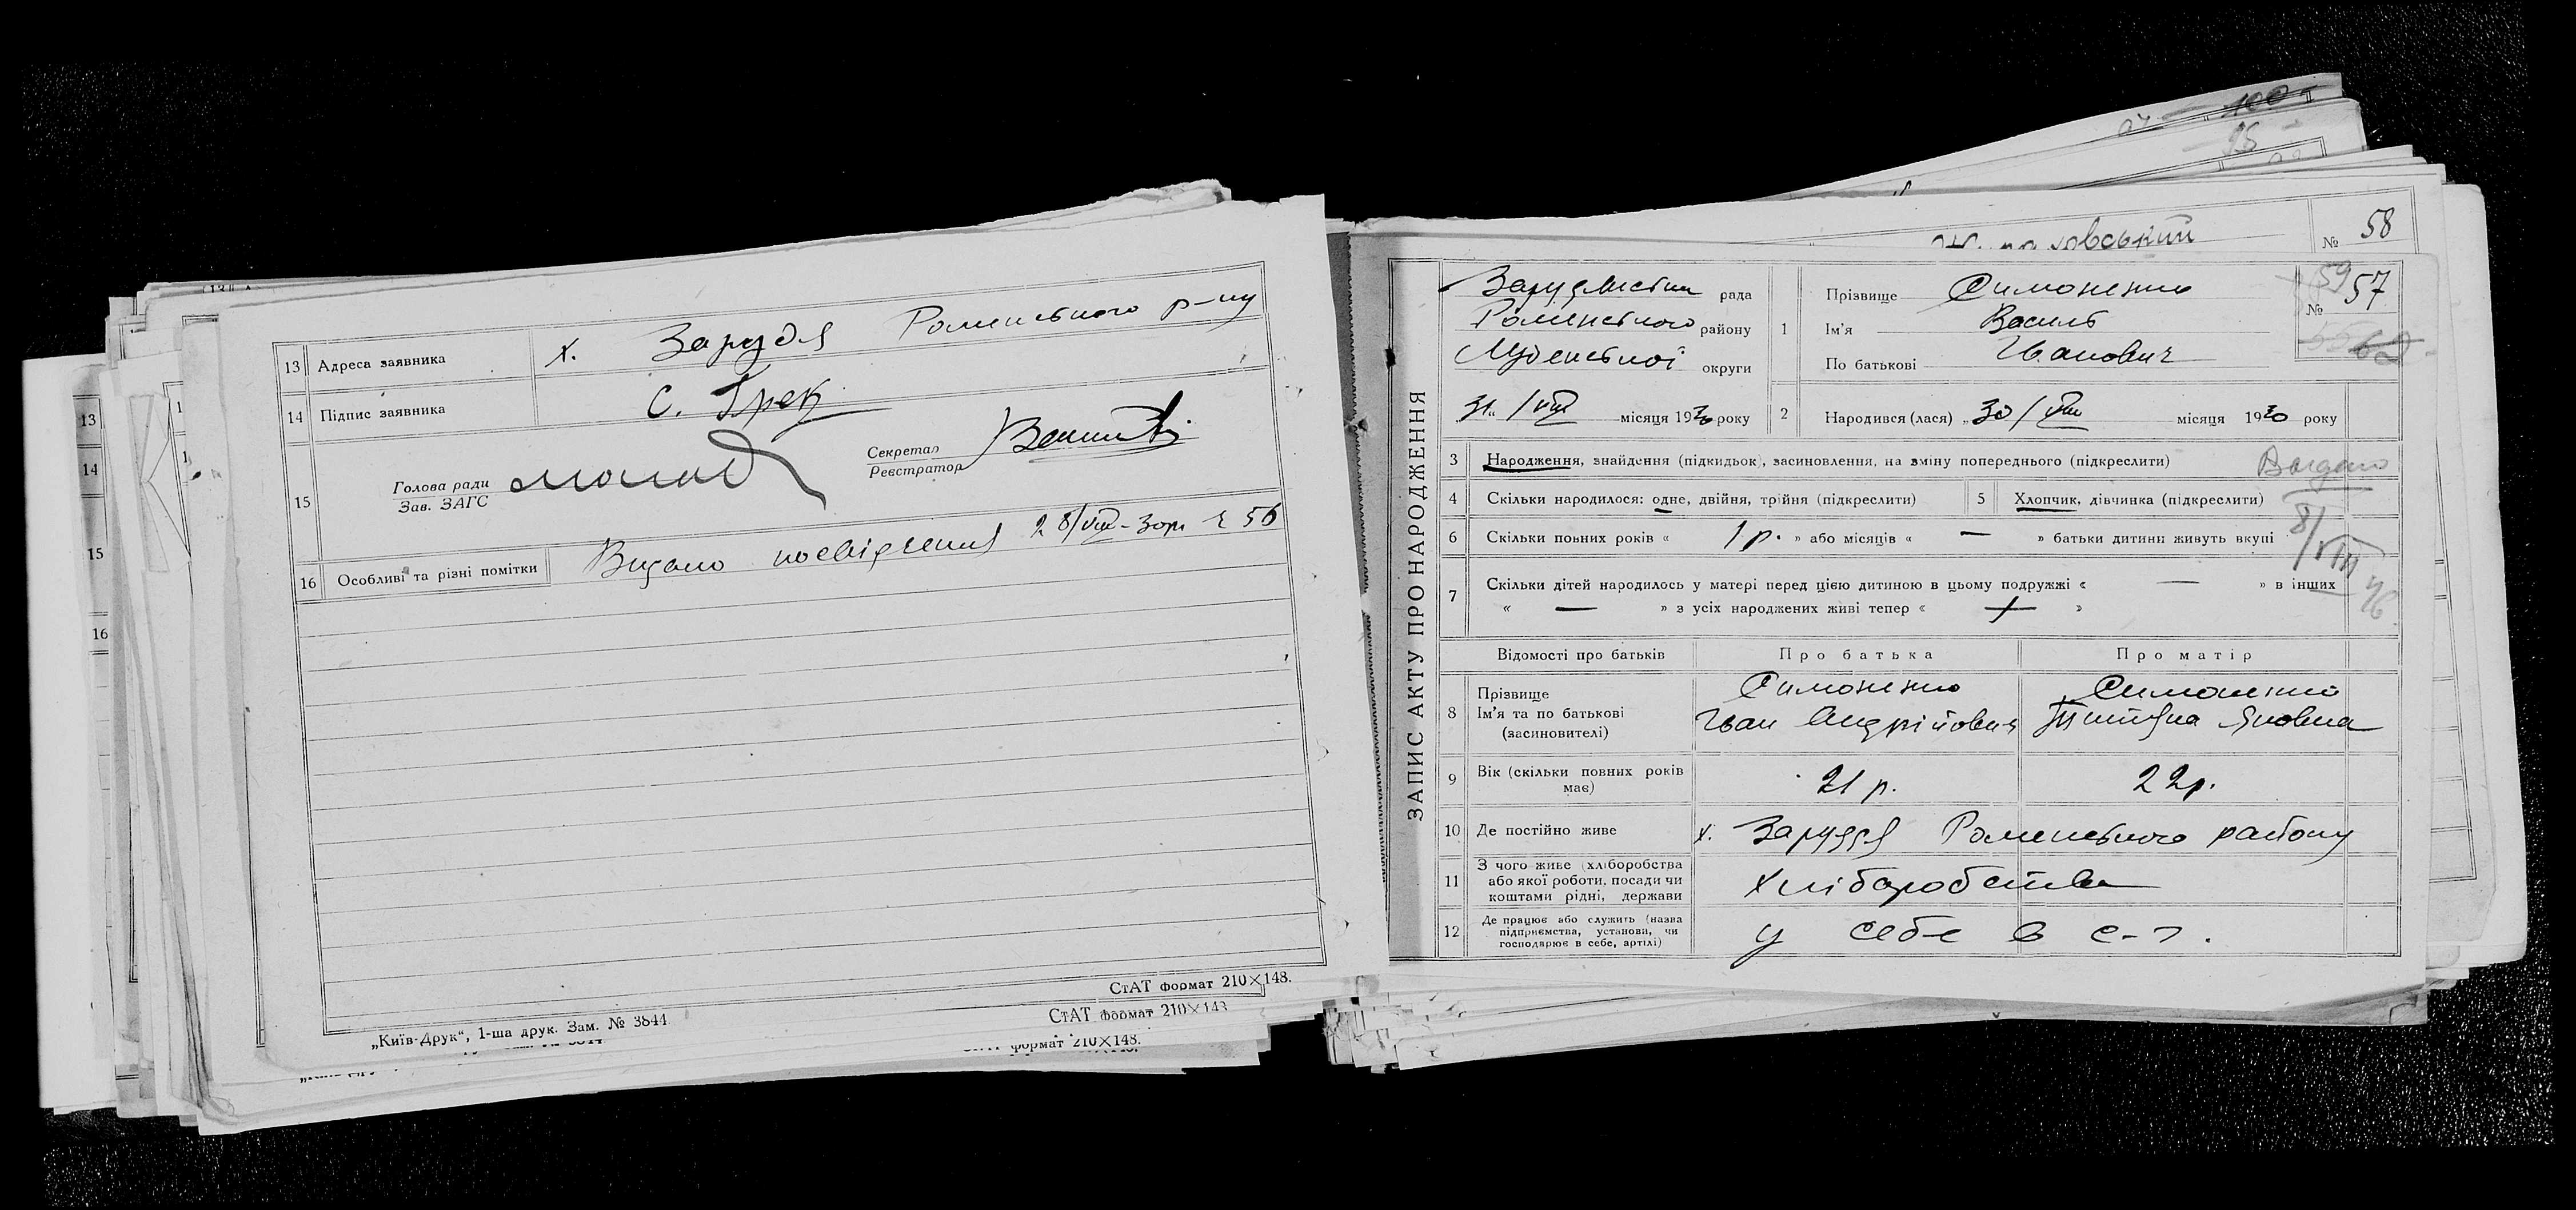 13 Адреса заявника х. Зарудя Роменського р-ну
14 Підпис заявника С. Грек
15 Голова ради
Зав. ЗАГС
Секретар
Реєстратор
16 Особливі та різні помітки Видано посвідчення 28/VIII-30р. 56
„Київ-Друк“, 1-ша друк. Зам. № 3844
СтАТ формат 210×148.
СтАТ формат 210×148
формат 210×148.
13
14
15
16
100
95
№ 58
ЗАПИС АКТУ ПРО НАРОДЖЕННЯ
рада
Роменського району
Лубенської округи
31 /VIII місяця 1930 року
1 Прізвище Симоненко
Ім'я Василь
По батькові Іванович
59
№ 57
2 Народився (лася) „ 30/VIII місяця 1930 року
3 Народження, знайдення (підкидьок), засиновлення, на зміну попереднього (підкреслити)
Видано
8/VIII 46
4 Скільки народилося: одне, двійня, трійня (підкреслити) 5 Хлопчик, дівчинка (підкреслити)
6 Скільки повних років « 1 р. » або місяців « — » батьки дитини живуть вкупі
7 Скільки дітей народилось у матері перед цією дитиною в цьому подружжі « — » в інших
« — » з усіх народжених живі тепер « »
Відомості про батьків Про батька Про матір
8 Прізвище Симоненко Симоненко
Ім'я та по батькові Іван Андрійович Яковна
(засиновителі)
9 Вік (скільки повних років має) 21 р. 22 р.
10 Де постійно живе х. Заруддя Роменського району
11 З чого живе (хліборобства
або якої роботи, посади чи
коштами рідні, держави хліборобства
12 Де працює або служить (назва
підприємства, установи, чи
господарює в себе, артілі) у себе в с-г.